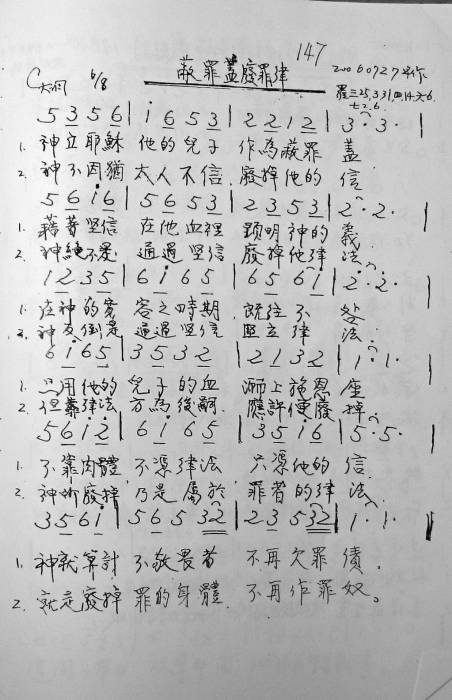 147
蔽罪蓋廢罪律
C大調 6/8
20060727早作
羅三25,331,四14,六6,
七2.6.
5 3 5 6 | i 6 5 3 | 2 2 1 2 | 3 · 3 · |
1. 神立耶穌 他的兒子 作為蔽罪 蓋
2. 神不因猶 太人不信 廢掉他的 信
5 6 i 6 | 5 6 5 3 | 2 3 5 3 | 2 · 2 · |
1. 藉著堅信 在他血裡 顯明神的 義
2. 神絕不是 通過堅信 廢掉他律 法
1 2 3 5 | 6 i 6 5 | 6 5 6 i | 2 · 2 · |
1. 在神的寬 容之時期 既往不 咎
2. 神反倒是 通過堅信 堅立律 法
6 i 6 5 | 3 5 3 2 | 2 1 3 2 | 1 · 1 · |
1. 只用他的 兒子的血 洒上施恩 座
2. 但靠律法 方為後嗣 應許便廢 掉
5 6 i 2 | 6 i 6 5 | 3 5 i 6 | 5 · 5 · |
1. 不靠肉體 不憑律法 只憑他的 信
2. 神所廢掉 乃是屬於 罪者的律 法
3 5 6 i | 5 6 5 3 2 | 2 3 5 3 2 | 1 · 1 · |
1. 神就算討 不敬畏者 不再欠罪 債。
2. 就是廢掉 罪的身體 不再作罪 奴。